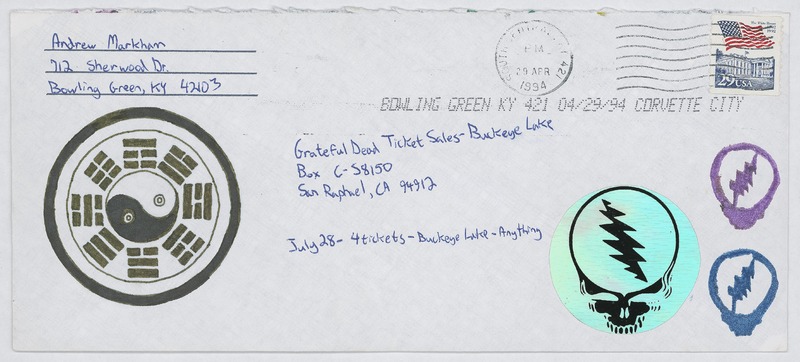 Andrew Markham
712 Sherwood Dr.
Bowling Green, KY 42103
29 APR
1994
29 USA
BOWLING GREEN KY 421 04/29/94 CORVETTE CITY
Grateful Dead Ticket Sales-Buckeye Lake
Box C-S8150
San Raphael, CA 94912
July 28- 4 tickets-Buckeye Lake-Anything